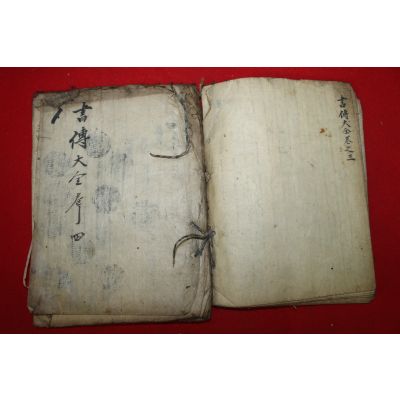 書傳大全卷之三
書傳大全 四